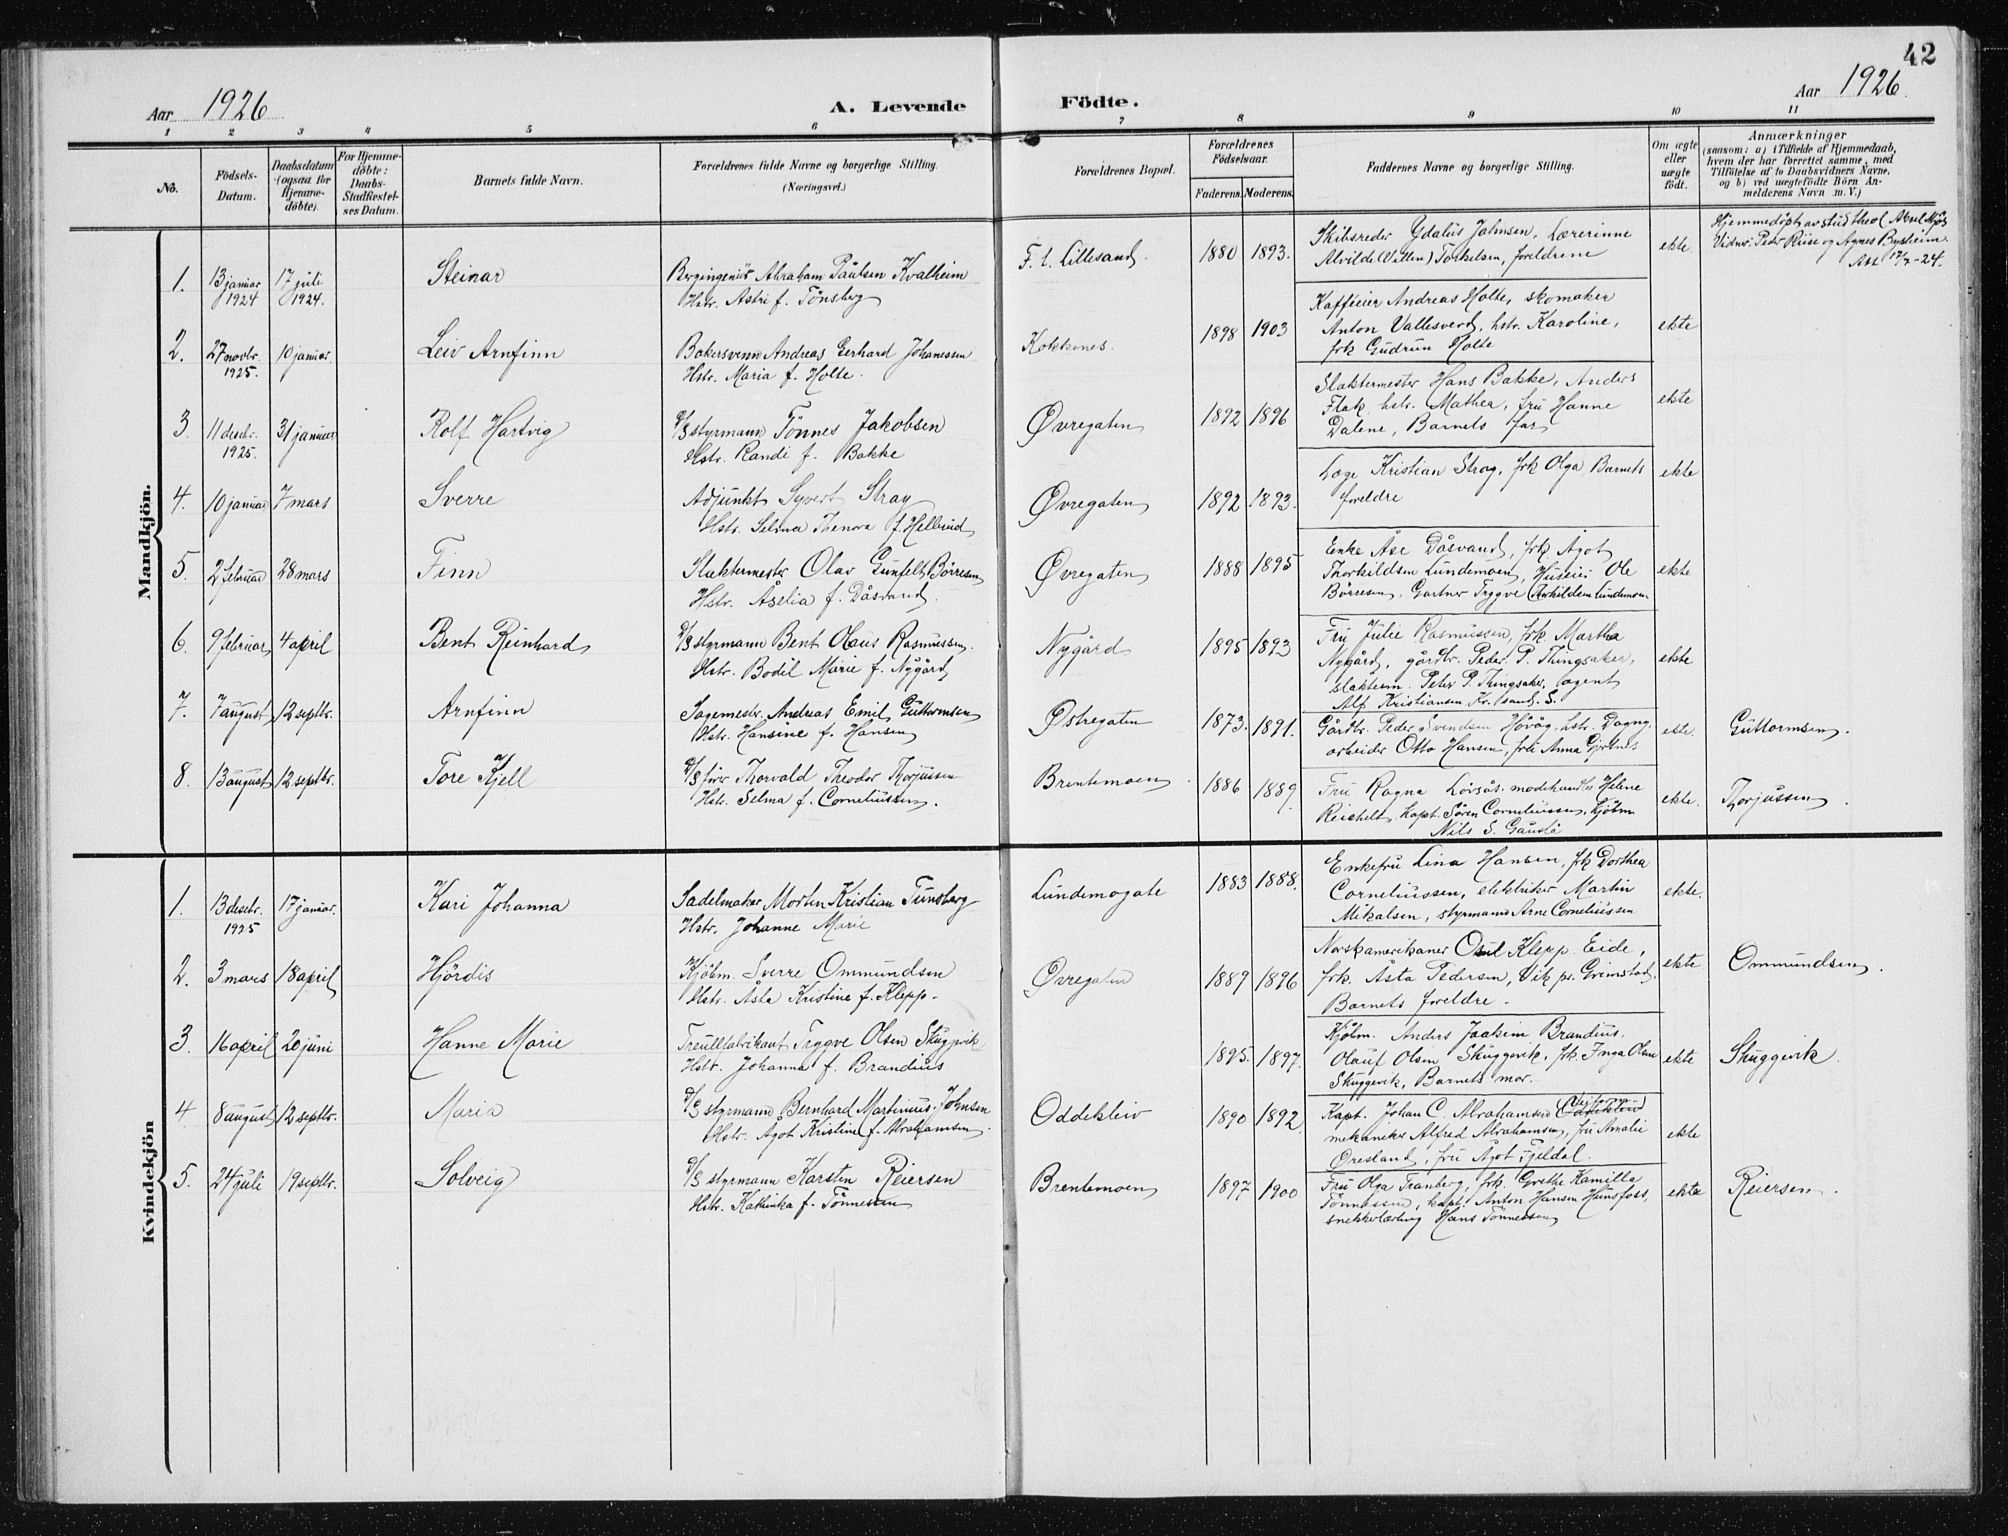 42
Aar 1926
A. Levende Födte.
Aar 1926
1 2 3 4 5 6 7 8 9 10 11
No.
Födsels-Datum.
Daabsdatum (ogsaa for Hjemme-döbte).
For Hjemme-döbte: Daabs-Stadfæstel-ses Datum.
Barnets fulde Navn.
Forældrenes fulde Navne og borgerlige Stilling.
(Næringsvei.)
Forældrenes Bopæl.
Forældrenes Födselsaar.
Faderens. Moderens.
Faddernes Navne og borgerlige Stilling.
Om ægte eller uægte födt.
Anmærkninger
(saasom: a) i Tilfælde af Hjemmedaab,
hvem der har forrettet samme, med
Tilföielse af to Daabsvidners Navne,
og b) ved uægtefödte Börn An-
melderens Navn m. V.)
Mandkjön.
1. 13 januar 1924 17 juli 1924. Steinar
Bergingeniör Abraham Paulsen Kvalheim
Hstr. Astri f. Tönsberg
F. t. Lillesand. 1880 1893.
Skibsreder Ydalüs Jahnsen, Lærerinne
Alvilde Torkelsen, foreldrene
ekte
Hjemmedöpt av stud theol Aksel
Vidner: Peder Riise og Agnes Bysheim.
17/7-24.
2. 27 novbr. 1925. 10 januar. Leiv Arnfinn
Bakersvenn Andreas Gerhard Johanessen
Hstr. Maria f. Holte.
Kokkenes. 1898 1903
Kafféeier Andreas Holte, skomaker
Anton Vallesverd, hstr. Karoline,
frk Gudrun Holte
ekte
3. 11 desbr. 1925. 31 januar Rolf Hartvig
D/S styrmann Tönnes Jakobsen
Hstr. Randi f. Bakke
Øvregaten 1892 1896
Slaktermester Hans Bakke, Anders
Flak hstr. Mathea, fru Hanne
Dalene, Barnets far
ekte
4. 10 januar 7 mars Sverre
Adjunkt Syvert Stray
Hstr. Selma Thenora f. Hellund
Øvregaten 1892 1893.
Læge Kristian Stray, frk Olga Barnets
foreldre
ekte
5. 2 februar 28 mars Finn
Slaktermester Olav Gunfelt Börresen
Hstr. Aselia f. Dåsvand.
Øvregaten 1888 1895
Enke Åse Dåsvand, frk Agot
Thorkildsen Lundemoen, Huseier Ole
Börresen, Gartner Trygve Torkildsen Lundemoen
ekte
6. 9 februar 4 april Bent Reinhard
D/S styrmann Bent Olaus Rasmussen.
Hstr. Bodil Marie f. Nygård
Nygård 1895 1893
Fru Julie Rasmussen, frk Martha
Nygård, gårdbr. Peder P. Thingsaker,
slaktersv. Peter P. Thingsaker, agent
Alf Kristiansen Kr. sand. S.
ekte
7. 7 august 12 septbr. Arnfinn
Sagemestr. Andreas Emil Guttormsen
Hstr. Hansine f. Hansen
Østregaten 1873. 1891.
Gårdbr. Peder Svendsen Hövåg, hstr. Dagny,
arbeider Otto Hansen, fru Anna
ekte. Guttormsen.
8. 13 august 12 septbr. Tore Kjell
D/S förer Thorvald Theodor Thorjussen
Hstr. Selma f. Corneliussen.
Brentemoen 1886 1889
Fru Ragna Lövsås. modehandler Helene
Reichelt, kapt. Sören Corneliussen, kjöbm
Nils S. Gauslå
ekte. Thorjussen.
Kvindekjön
1. 13 desbr. 1925 17 januar. Kari Johanna
Sadelmaker Morten Kristian Tunsberg
Hstr. Johanne Marie
Lundemogate 1883 1888.
Enkefru Lina Hansen, frk Dorthea
Corneliussen, elektriker Martin
Mikalsen, styrmann Arne Corneliussen
ekte.
2. 3 mars 18 april Hjördis
Kjöbm. Sverre Ommundsen
Hstr. Åsta Kristine f. Klepp.
Øvregaten 1889 1896
Norskamerikaner Klepp Eide,
frk. Åsta Pedersen, Vik pr. Grimstad,
Barnets foreldre.
ekte Ommundsen.
3. 16 april 20 juni Hanne Marie
Treullfabrikant Trygve Olsen Skuggevik
Hstr. Johanna f. Brandius
1895. 1897.
Kjöbm. Anders Joakim Brandius.
Olauf Olsen Skuggevik, frk. Inga Olsen
Skuggevik, Barnets mor.
ekte Skuggevik.
4 8 august 12 septbr. Maria
D/S styrmann Bernhard Martinius Johnsen
Hstr. Agot Kristine f. Abrahamsen.
Oddekleiv 1890 1892.
Kapt. Johan C. Abrahamsen Oddekleiv
mekaniker Alfred Abrahamsen, fru Amalie
Øresland, fru Agot Fjeldal.
ekte
5. 24 juli 19 septbr. Solveig
D/S styrmann Karsten Reiersen
Hstr. Kathinka f. Tönnesen
Brentemoen 1897 1900
Fru Olga Tranberg, frk. Grethe Kamilla
Tönnessen, kapt. Anton Hansen Hunsfoss,
snekkerlærling Hans Tönnessen
ekte Reiersen.